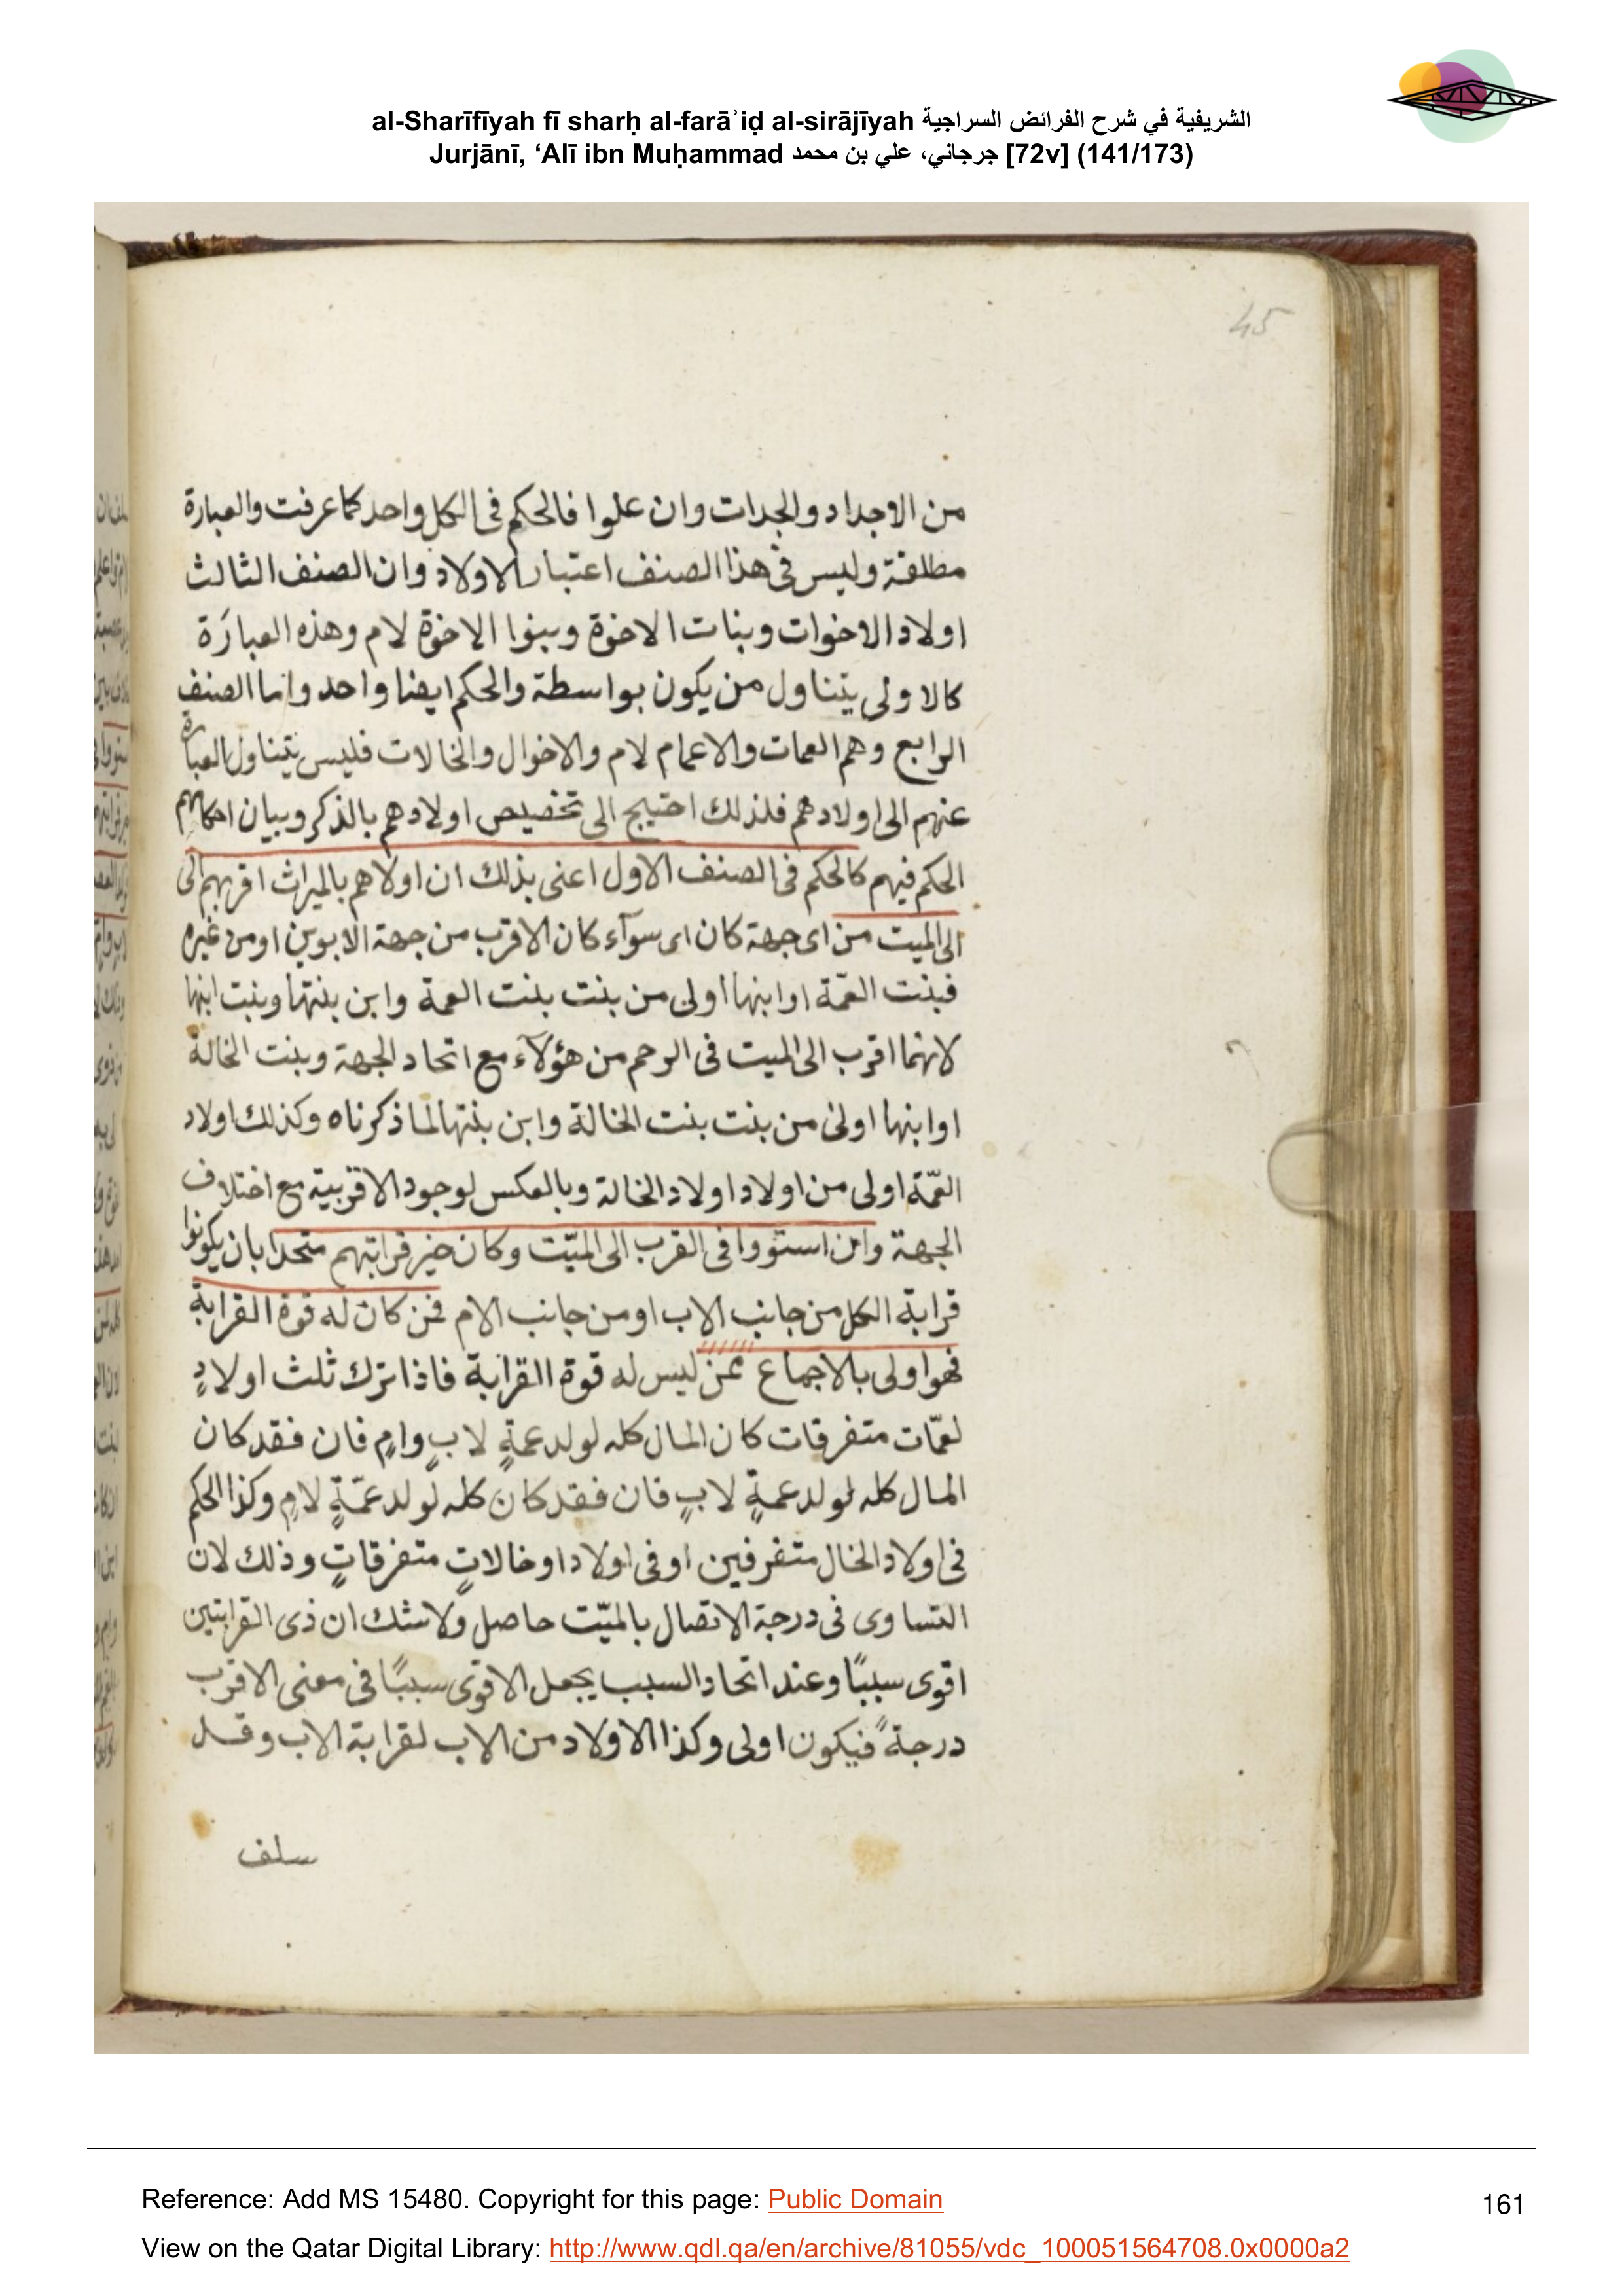 al-Sharīfīyah fī sharḥ al-farāʾiḍ al-sirājīyah الشريفية في شرح الفرائض السراجية
Jurjānī, ‘Alī ibn Muḥammad جرجاني، علي بن محمد [72v] (141/173)
45
من الاجداد والجدات وان علوا فالحكم فى الكل واحد كما عرفت والعبارة
مطلقة وليس فى هذا الصنف اعتبار الاولاد وان الصنف الثالث
اولاد الاخوات وبنات الاخوة وبنوا الاخوة لام وهذه العبارَة
كالاولى يتناول من يكون بواسطة والحكم ايضا واحد واما الصنف
الرابع وهم العمات والاعمام لام والاخوال والخالات فليس يتناول العبارة
عنهم الى اولادهم فلذلك احتيج الى تخصيص اولادهم بالذكر وبيان احكامهم
الحكم فيهم كالحكم فى الصنف الاول اعنى بذلك ان اولاهم بالميراث اقربهم الى
الى الميت من اى جهة كان اى سوآء كان الاقرب من جهة الابوين او من غيره
فبنت العمّة او ابنها اولى من بنت بنت العمة وابن بنتها وبنت ابنها
لانهما اقرب الى الميت فى الرحم من هؤلآء مع اتحاد الجهة وبنت الخالة
او ابنها اولى من بنت بنت الخالة وابن بنتها لما ذكرناه وكذلك اولاد
العمّة اولى من اولاد اولاد الخالة وبالعكس لوجود الاقربية مع اختلاف
الجهة وان استووا فى القرب الى الميّت وكان حيز قرابتهم متحدا بان يكونوا
قرابة الكل من جانب الاب او من جانب الام فمن كان له قوة القرابة
فهو اولى بالاجماع ممن ليس له قوة القرابة فاذا ترك ثلث اولادٍ
لعمّات متفرقات كان المال كله لولد عمةٍ لابٍ وامٍ فان فقد كان
المال كله لولد عمةٍ لابٍ فان فقد كان كله لولد عمّةٍ لامٍ وكذا الحكم
فى اولاد الخال متفرقين او فى اولاد او خالاتٍ متفرقاتٍ وذلك لان
التساوى فى درجة الاتصال بالميّت حاصل ولا شك ان ذى القرابتين
اقوى سببًا وعند اتحاد السبب يجعل الاقوى سببًا فى معنى الاقرب
درجةً فيكون اولى وكذا الاولاد من الاب لقرابة الاب وقد
سلف
Reference: Add MS 15480. Copyright for this page: Public Domain
161
View on the Qatar Digital Library: http://www.qdl.qa/en/archive/81055/vdc_100051564708.0x0000a2